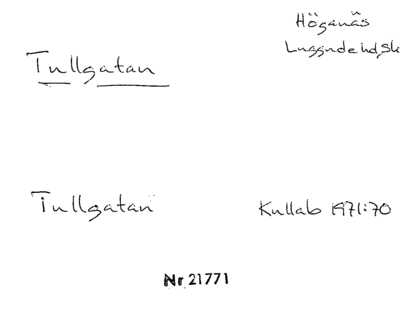 Höganäs
Luggude hd, Sk
Tullgatan
Tullgatan
Kullab 1971:70
Nr 21771